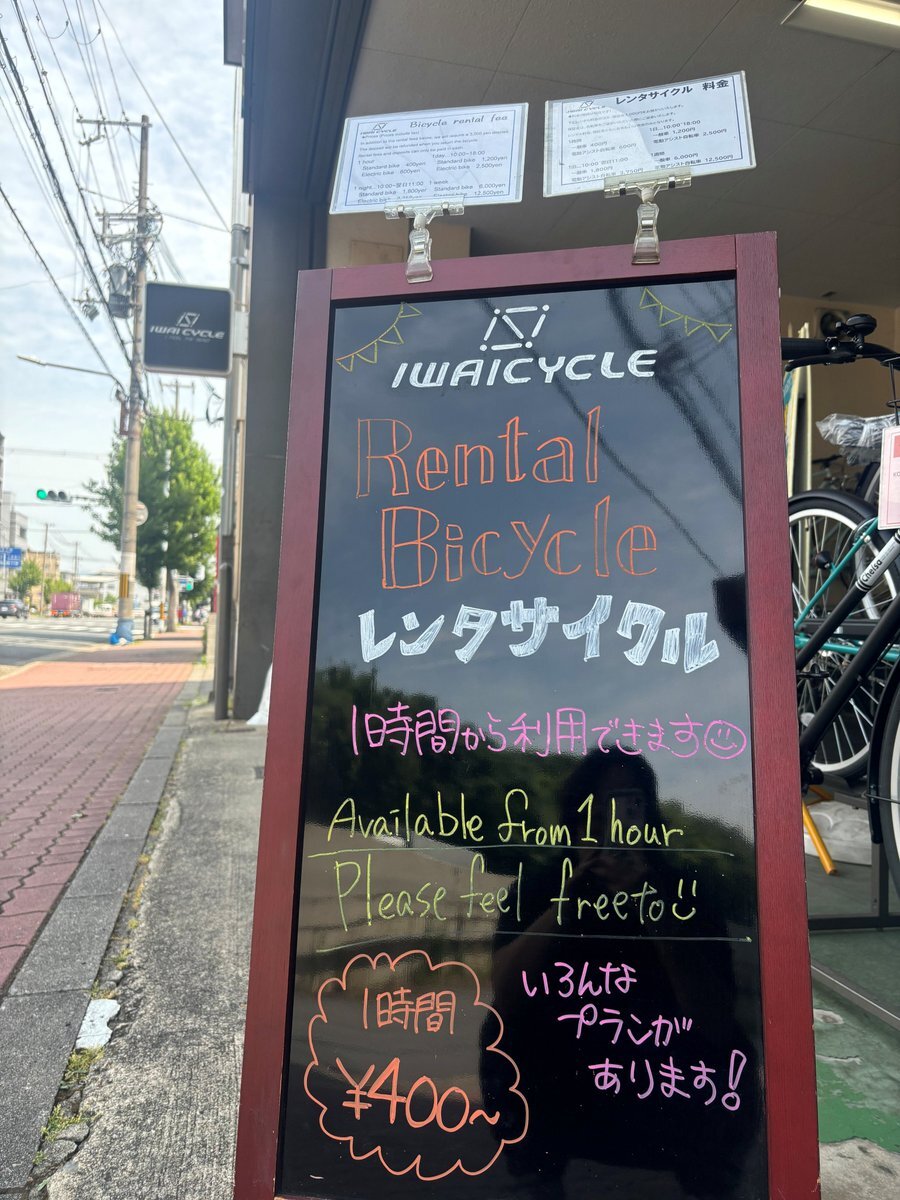 IWAICYCLE
Bicycle rental fee
1 hour
Standard bike 400yen
Electric bike 600yen
1day...10:00~18:00
Standard bike 1,200yen
Electric bike 2,500yen
1 night...10:00~翌日11:00
Standard bike 1,800yer
Electric bike
1 week
Standard bike 6,000yen
12,500yen
レンタサイクル 料金
1時間
一般車 400円
電動アシスト自転車 600円
1日...10:00~18:00
一般車 1,200円
電動アシスト自転車 2,500円
1泊...10:00~翌日11:00
一般車 1,800円
電動アシスト自転車 3,750円
1週間
一般車 6,000円
電動アシスト自転車 12,500円
IWAI CYCLE
IWAICYCLE
Rental
Bicycle
レンタサイクル
1時間から利用できます
Available from 1 hour
Please feel free to
1時間
¥400~
いろんな
プランが
あります!
Chelsa